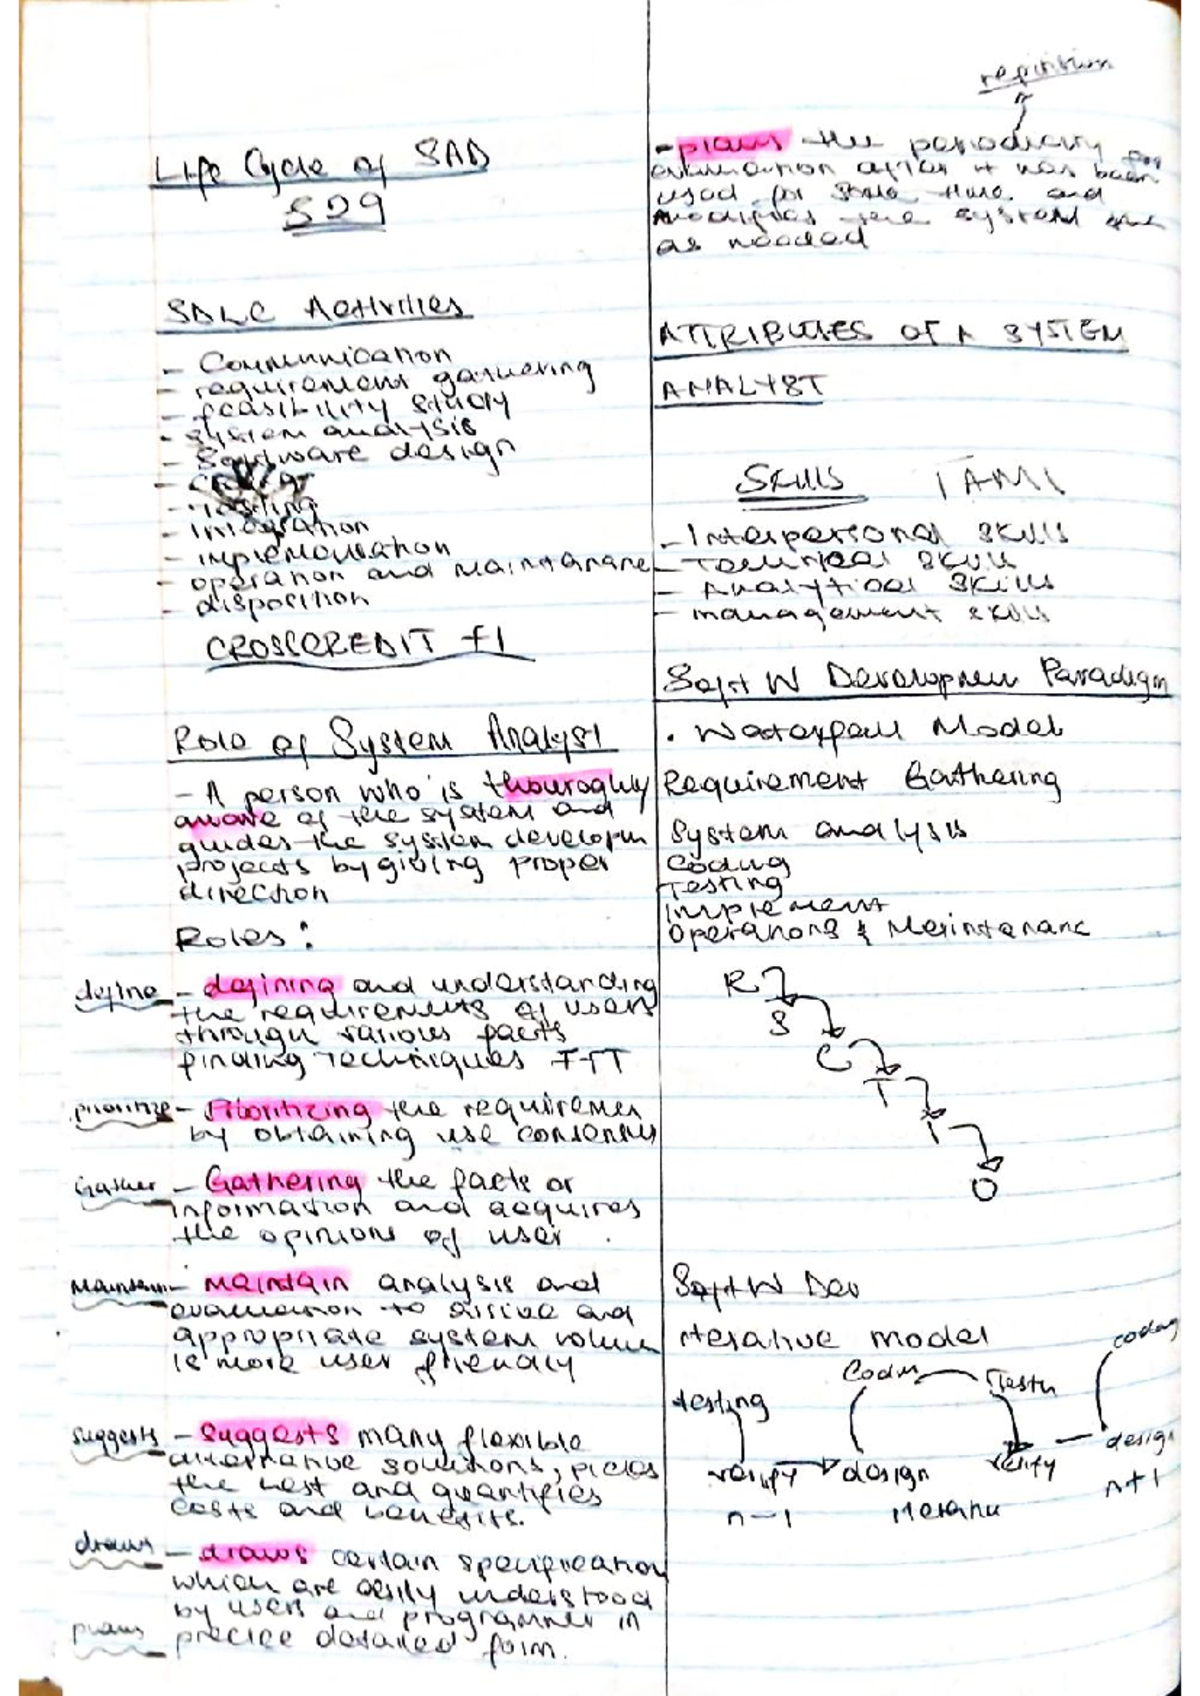 Life Cycle of SAD
SDLC Activities
- Communication
- requirement gathering
- feasibility study
- system analysis
- Software design
- Testing
- integration
- implementation
- operation and Maintanane
- disposition
CROSSCREDIT f1
Role of System Analyst
- A person who is thouroghly
aware of the system and
guides the system developm
projects by giving proper
direction
Roles:
define - defining and understanding
the requirements of users
through various facts
finding Techniques FFT
prioritize - Prioritizing the requiremen
by obtaining use consensus
Gather - Gathering the facts or
information and acquires
the opinions of user.
Maintain - Maintain analysis and
evaluation to arrive and
appropriate system
is more user friendly
suggests - Suggests many flexible
alternative solutions, picks
the best and quantifies
costs and benefits.
draws - draws certain specification
which are easily understood
by users and programmer in
plans precise detailed form.
- plans the periodicity
evaluation after it has been
used for some time and
modifies the system
as needed
ATTRIBUTES OF A SYSTEM
ANALYST
Skills TAMI
- Interpersonal skills
- Technical skills
- Analytical skills
- management skills
Soft W Developmen Paradigm
. Waterfall Model
Requirement Gathering
System analysis
Coding
Testing
Implement
Operations & Meintananc
R
S
C
T
I
O
Soft W Dev
iterative model
testing
verify
n-1
design
Codin
Testn
verify
design
coding
n+1